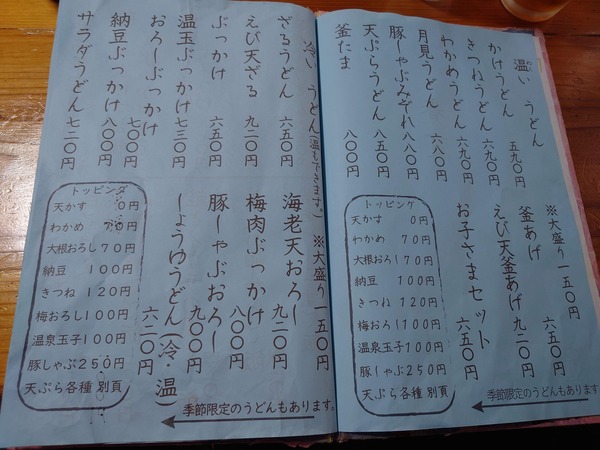 温い うどん
かけうどん 五九〇円
きつねうどん 六九〇円
わかめうどん 六九〇円
月見うどん 六八〇円
豚しゃぶみぞれ 八八〇円
天ぷらうどん 八五〇円
釜たま 八〇〇円
※大盛り一五〇円
釜あげ 六五〇円
えび天釜あげ 九二〇円
お子さまセット 六五〇円
トッピング
天かす 0円
わかめ 70円
大根おろし 170円
納豆 100円
きつね 120円
梅おろし 100円
温泉玉子 100円
豚しゃぶ 250円
天ぷら各種 別頁
季節限定のうどんもあります。
冷い うどん(温もできます。)
ざるうどん 六五〇円
えび天ざる 九二〇円
ぶっかけ 六五〇円
温玉ぶっかけ 七三〇円
おろしぶっかけ 七〇〇円
納豆ぶっかけ 八〇〇円
サラダうどん 七二〇円
※大盛り一五〇円
海老天おろし 九二〇円
梅肉ぶっかけ 八〇〇円
豚しゃぶおろし 九〇〇円
しょうゆうどん(冷・温) 六二〇円
トッピング
天かす 0円
わかめ 70円
大根おろし 70円
納豆 100円
きつね 120円
梅おろし 100円
温泉玉子 100円
豚しゃぶ 250円
天ぷら各種 別頁
季節限定のうどんもあります。